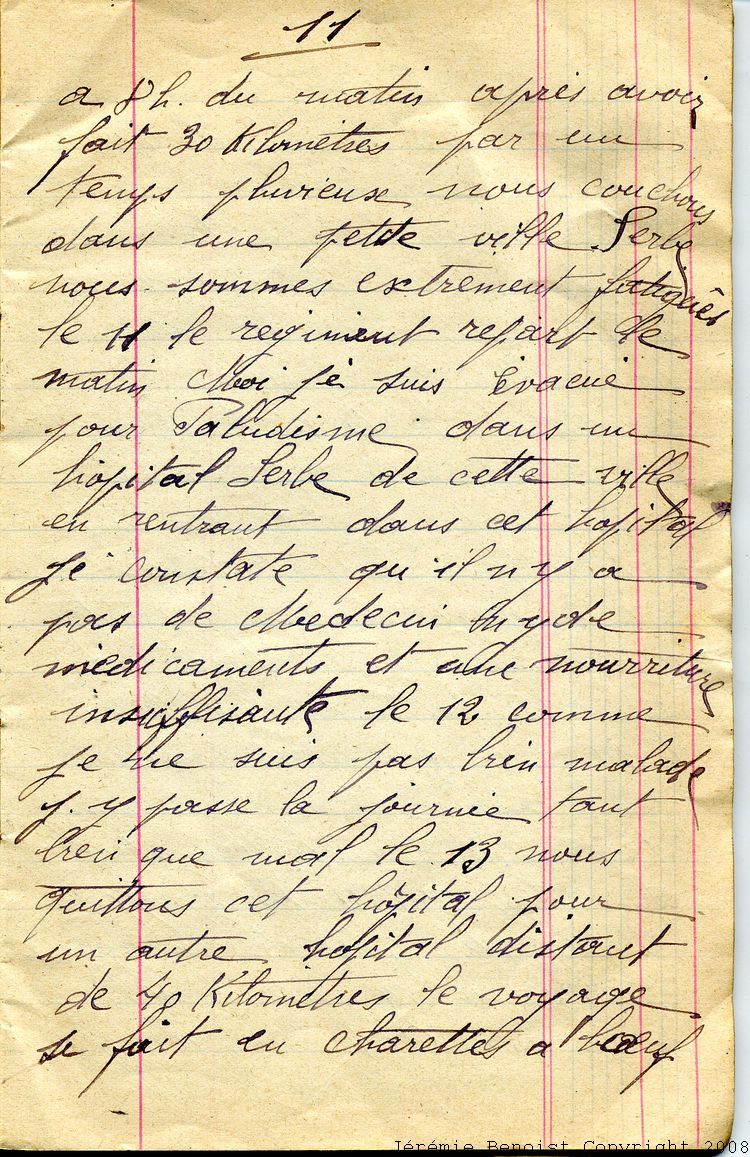 11
a 8h. du matin après avoir
fait 30 Kilomètres par un
temps pluvieux nous couchons
dans une petite ville Serbe
nous sommes extrement fatigués
le 11 le regiment repart le
matin Moi je suis évacué
pour Paludisme dans un
hôpital Serbe de cette ville
en rentrant dans cet hopital
je constate qu'il n y a
pas de Medecin ny de
médicaments et une nourriture
insuffisante le 12 comme
je ne suis pas bien malade
j.y passe la journée tant
bien que mal le 13 nous
quittons cet hôpital pour
un autre hopital distant
de 40 Kilometres le voyage
se fait en charettes a bœuf
Jérémie Benoist Copyright 2008